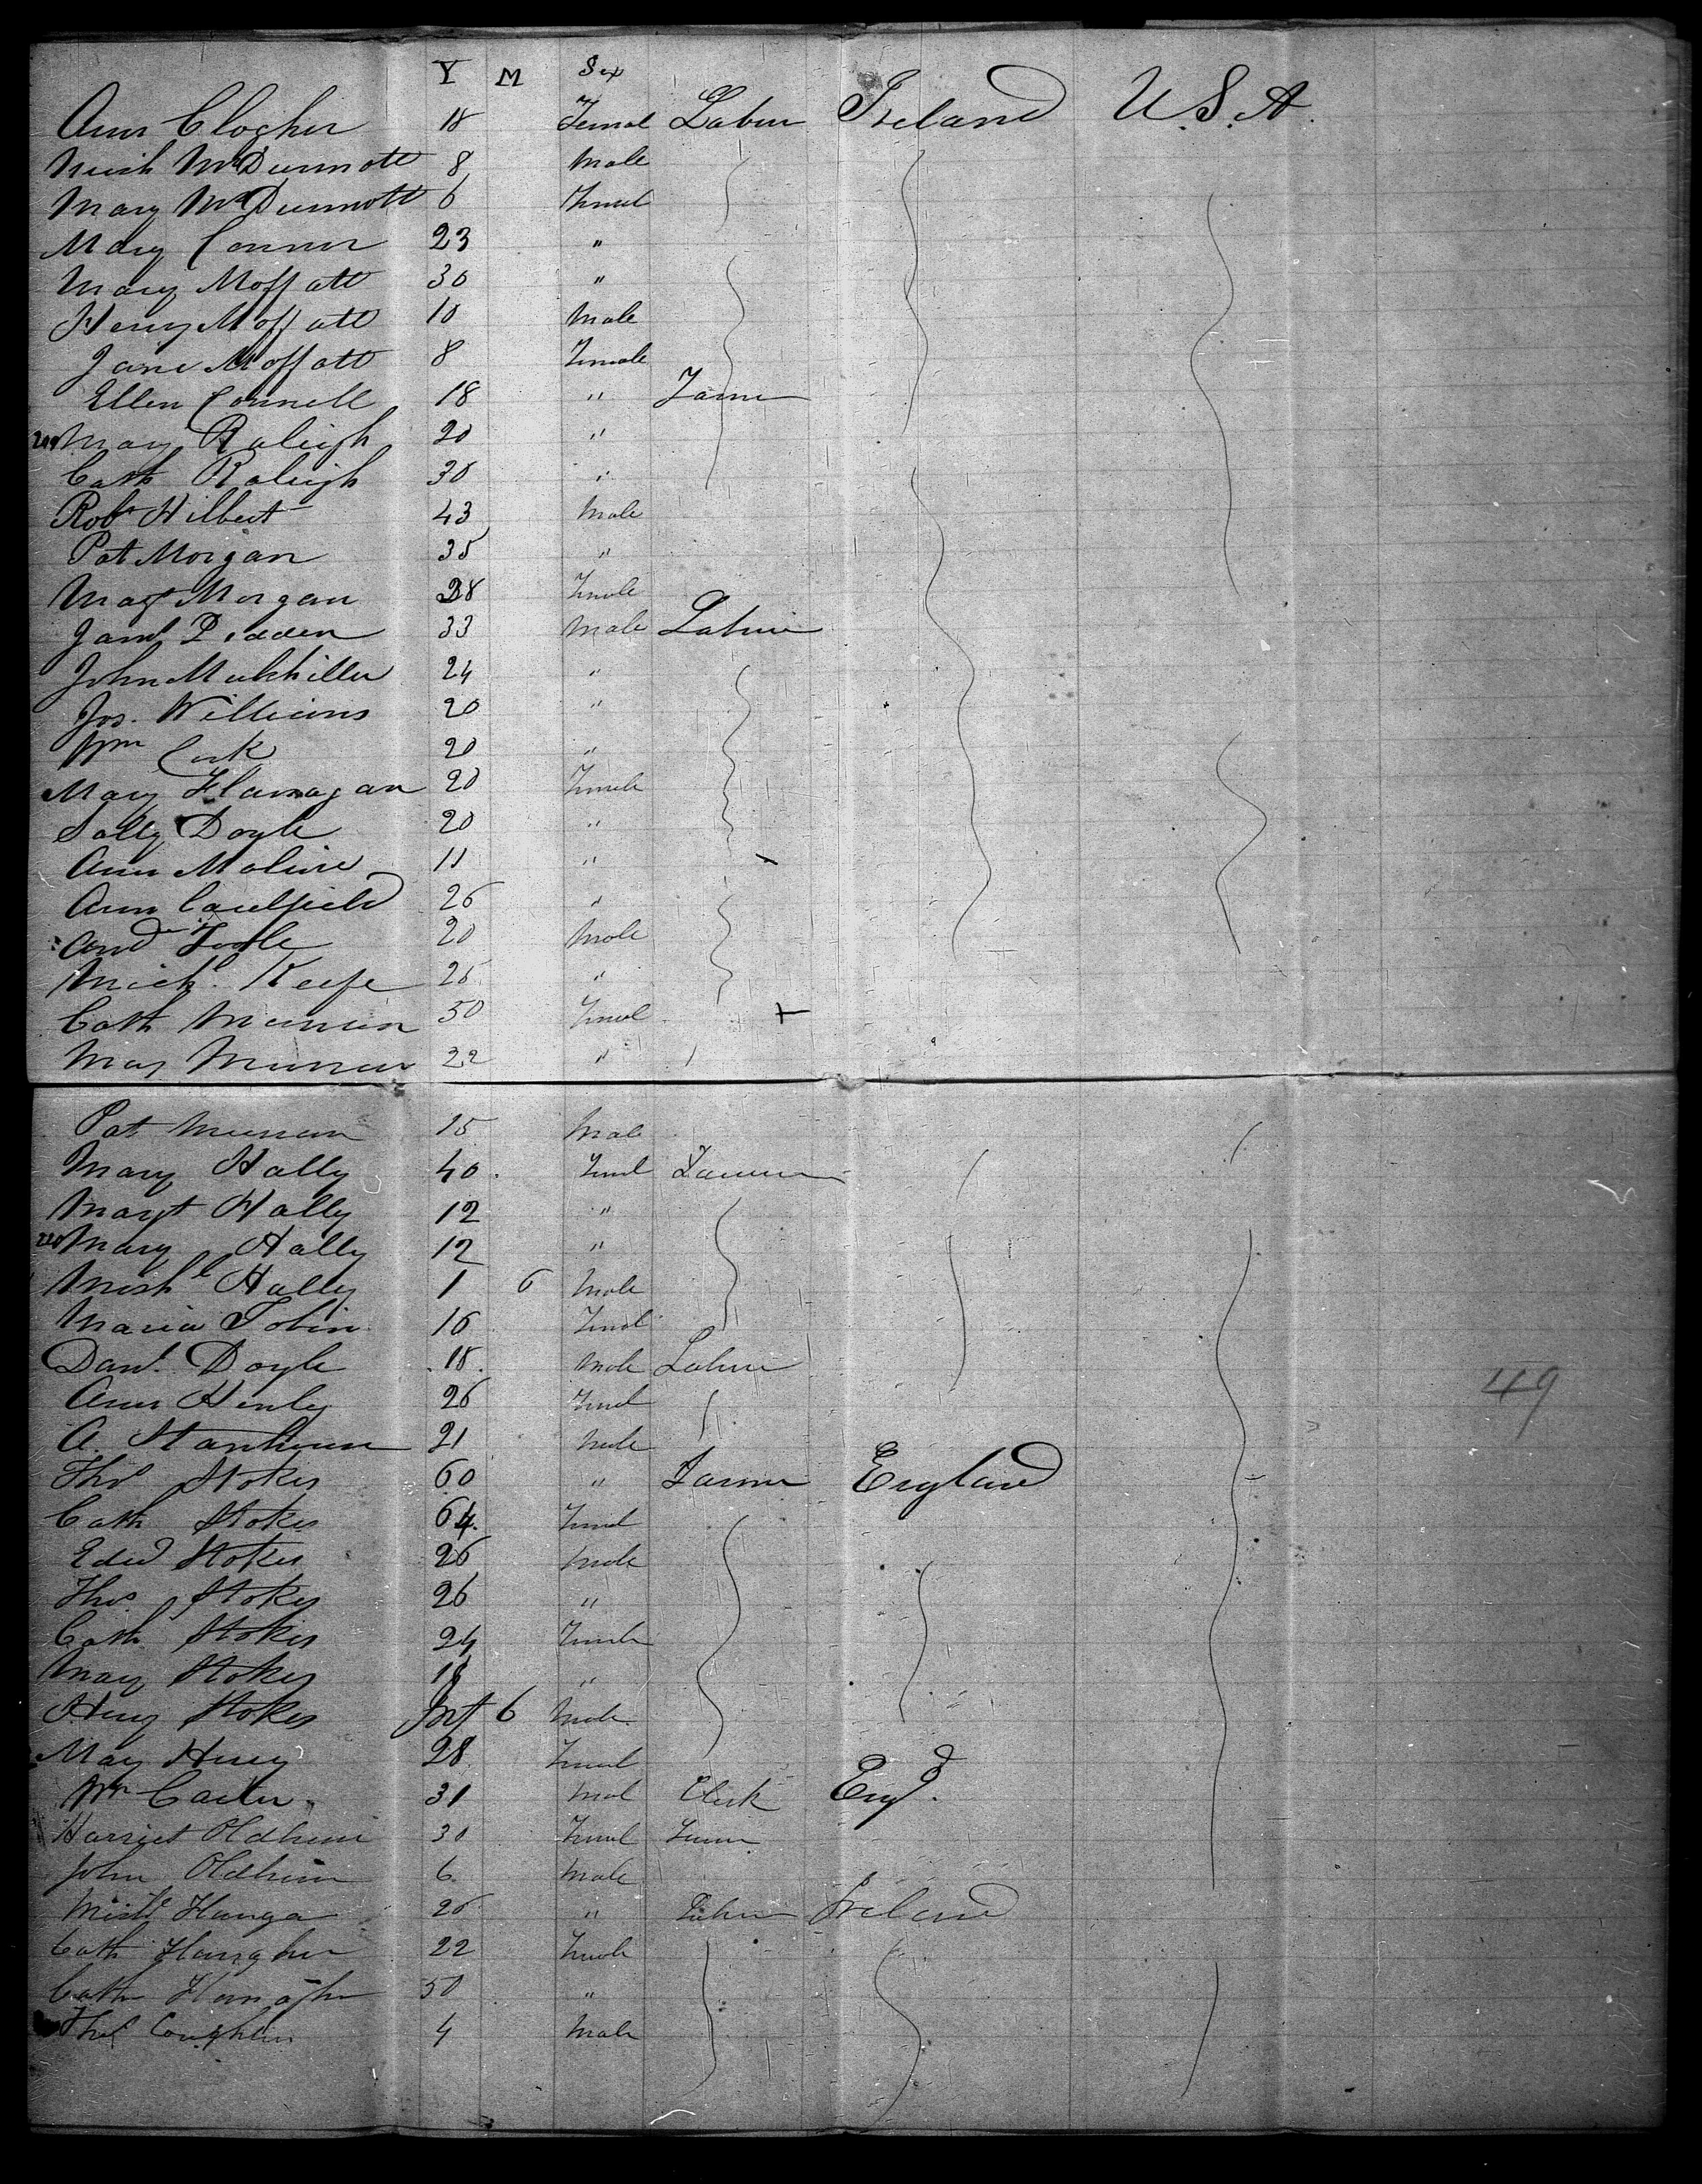 Y M Sex
Ann Clogher 18 Femal Labor Ireland U.S.A.
Mich McDermott 8 Male
Mary McDermott 6 Femal
Mary Connor 23 "
Mary Moffatt 30 "
Henry Moffatt 10 Male
Jane Moffatt 8 Female
Ellen Connell 18 " Farmer
Mary Raleigh 20 "
Cath Raleigh 30 "
Robt Hilbert 43 Male
Pat Morgan 35 "
Magt Morgan 38 Female
Jams 33 Male Labour
John 24 "
Jos. Williams 20 "
Wm Cork 20 "
Mary Flannagan 20 Female
Sally Doyle 20 "
Ann 11 "
Ann Caulfield 26 "
And Toole 20 Male
Michl Keefe 25 "
Cath 50 Femal
May 22 "
Pat 15 Male
Mary Hally 40 Feml Farmer
Margt Hally 12 "
Mary Hally 12 "
Michl Hally 1 6 Male
Maria Tobin 16 Femal
Danl. Doyle 18 Male Labour
Ann Henley 26 Femal 49
A. 21 Male
Thos Stokes 60 " Farmer England
Cath Stokes 64 Femal
Edwd Stokes 26 Male
Thos Stokes 26 "
Cath Stokes 24 Female
Mary Stokes 18 "
Henry Stokes Inf 6 Male
Mary Henry 28 Femal
Wm Carter 31 Mal Clerk Engd.
Harriet Oldham 30 Femal Farmer
John Oldham 6 Male
Michl 26 " Labour Ireland
Cath 22 Female
Cath 50 "
Thos Coughlin 4 Male